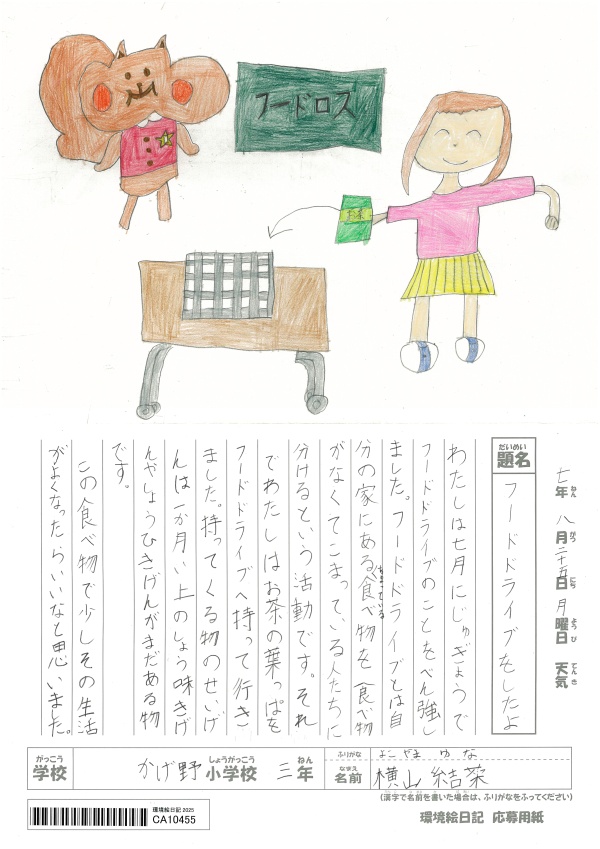 フードロス
お茶
七年 八月二十五日 月曜日 天気
ねん がつ にち ようび てんき
だいめい
題名
フードドライブをしたよ
わたしは七月にじゅぎょうで
フードドライブのことをべん強し
ました。フードドライブとは自
分の家にある食べ物を食べ物
あまっている
がなくてこまっている人たちに
分けるという活動です。それ
でわたしはお茶の葉っぱを
フードドライブへ持って行き
ました。持ってくる物のせいげ
んは一か月い上のしょう味きげ
んやしょうひきげんがまだある物
です。
この食べ物で少しその生活
がよくなったらいいなと思いました。
がっこう
学校
かげ野小学校 三年
しょうがっこう ねん
ふりがな よこやま ゆな
なまえ
名前 横山 結菜
(漢字で名前を書いた場合は、ふりがなをふってください)
環境絵日記 2025
CA10455
環境絵日記 応募用紙